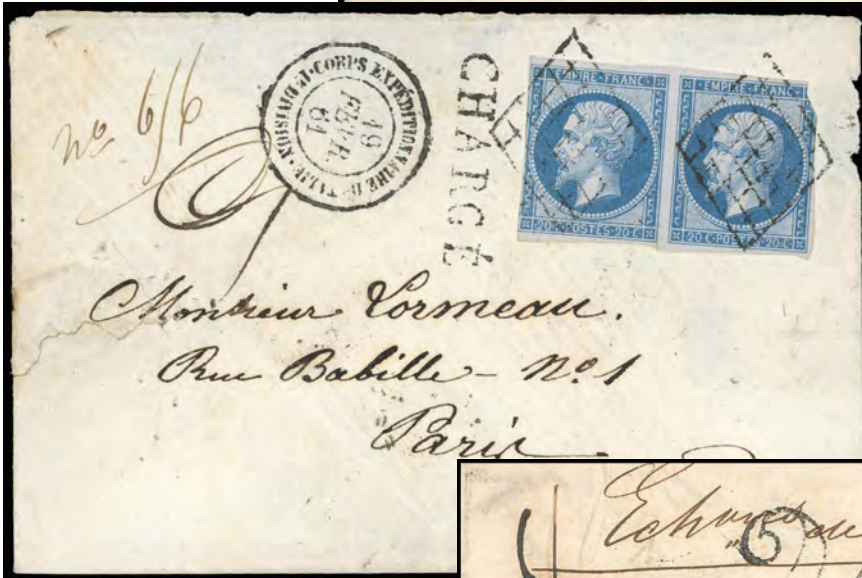 nº 616
CORPS EXPÉDITIONNAIRE D'ITALIE
19
FEVR.
61
CHARGÉ
EMPIRE·FRANC·
20·C·POSTES·20·C·
EMPIRE·FRANC·
20·C·POSTES·20·C·
Monsieur Lormeau.
Rue Babille - Nº 1
Paris
5